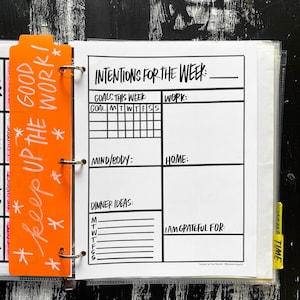 GOOD
keep UP THE WORK!
INTENTIONS FOR THE WEEK:
GOALS THIS WEEK
GOAL M T W T F S S
WORK:
MIND/BODY:
HOME:
DINNER IDEAS:
M
T
W
T
F
S
S
I AM GRATEFUL FOR:
TIME